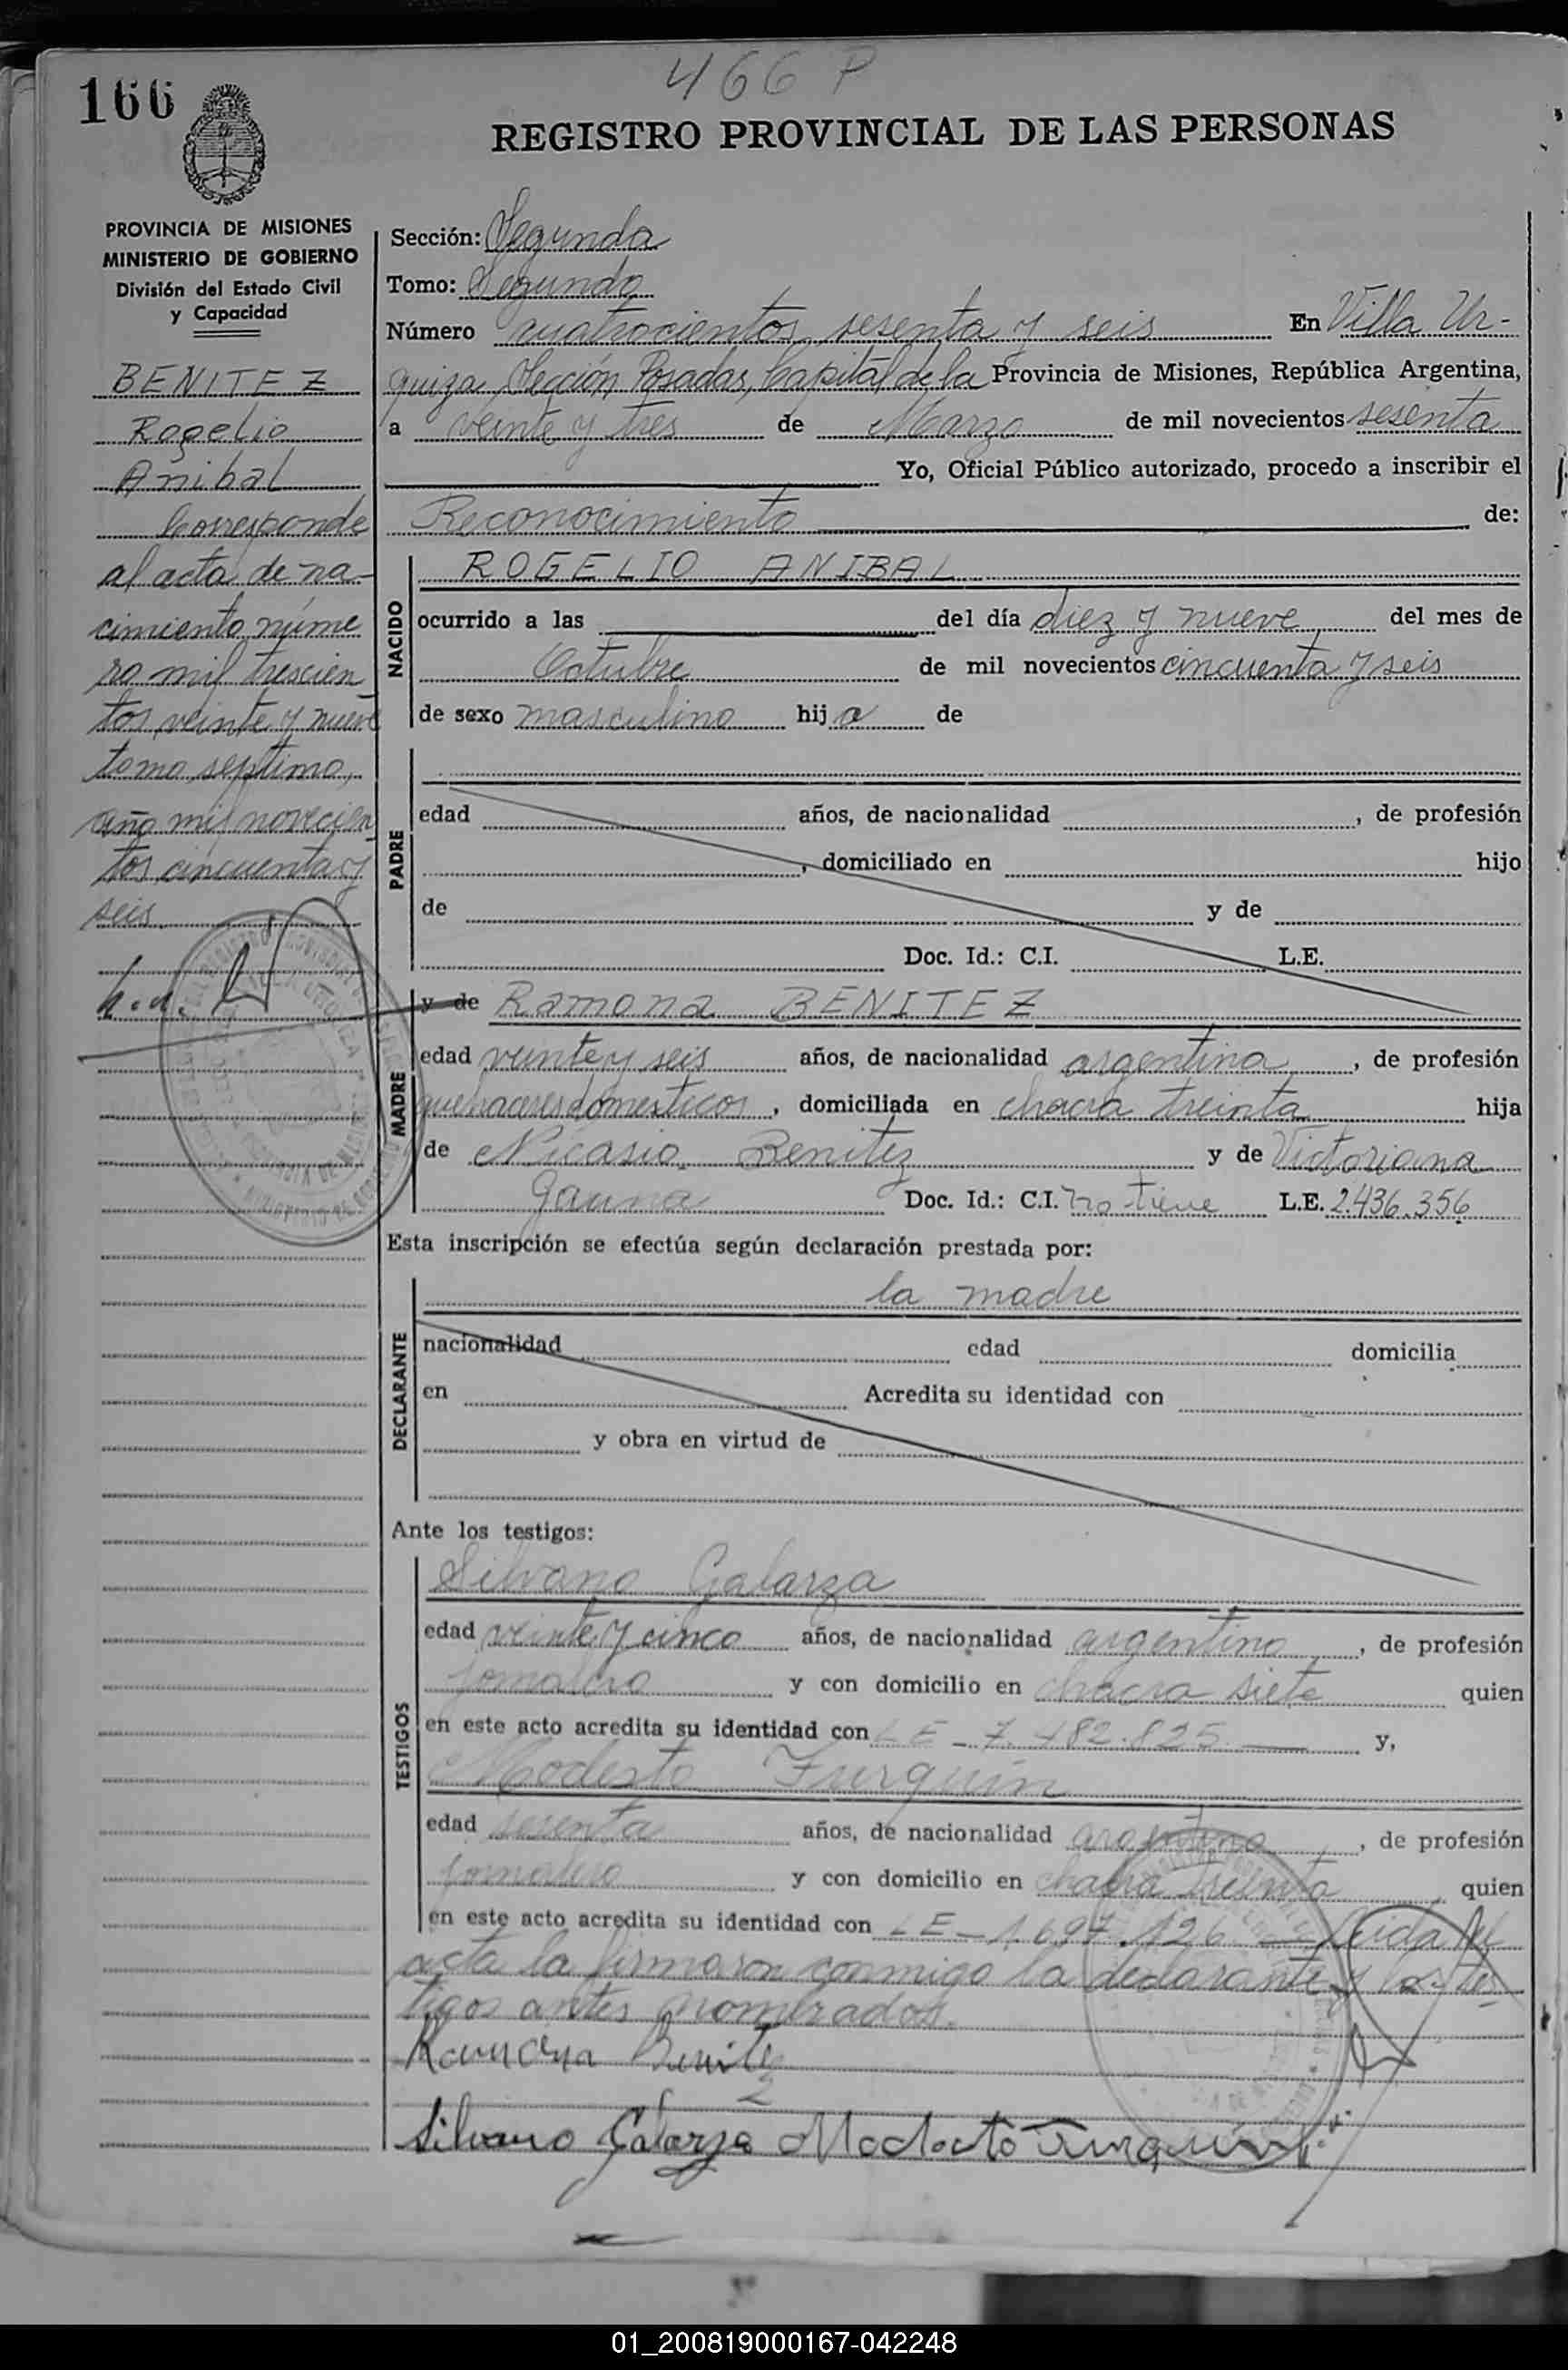 466 P
166
REGISTRO PROVINCIAL DE LAS PERSONAS
PROVINCIA DE MISIONES
MINISTERIO DE GOBIERNO
División del Estado Civil
y Capacidad
BENITEZ
Rogelio
Anibal
Corresponde
al acta de na-
cimiento núme
ro mil trescien
tos veinte y nueve
tomo septimo,
año mil novecien
tos cincuenta y
seis.
Sección: Segunda
Tomo: Segundo
Número cuatrocientos sesenta y seis En Villa Ur-
quiza, Sección Posadas, Capital de la Provincia de Misiones, República Argentina,
a veinte y tres de Marzo de mil novecientos sesenta
Yo, Oficial Público autorizado, procedo a inscribir el
Reconocimiento de:
NACIDO
ROGELIO ANIBAL
ocurrido a las del día diez y nueve del mes de
Octubre de mil novecientos cincuenta y seis
de sexo masculino hijo de
PADRE
edad años, de nacionalidad , de profesión
, domiciliado en hijo
de y de
Doc. Id.: C.I. L.E.
MADRE
y de Ramona BENITEZ
edad veinte y seis años, de nacionalidad argentina, de profesión
quehaceres domesticos, domiciliada en chacra treinta hija
de Nicasio Benitez y de Victoriana
Gauna Doc. Id.: C.I. no tiene L.E. 2.436.356
Esta inscripción se efectúa según declaración prestada por:
DECLARANTE
la madre
nacionalidad edad domicilia
en Acredita su identidad con
y obra en virtud de
Ante los testigos:
TESTIGOS
Silvano Galarza
edad veinte y cinco años, de nacionalidad argentino, de profesión
jornalero y con domicilio en chacra siete quien
en este acto acredita su identidad con LE - 7.482.825 y,
Modesto Furquin
edad sesenta años, de nacionalidad argentino, de profesión
jornalero y con domicilio en chacra treinta quien
en este acto acredita su identidad con LE - 1.697.126 Leida el
acta la firmaron conmigo la declarante y los tes-
tigos antes nombrados.
Ramona Benitez
Silvano Galarza Modesto Furquin
01_200819000167-042248